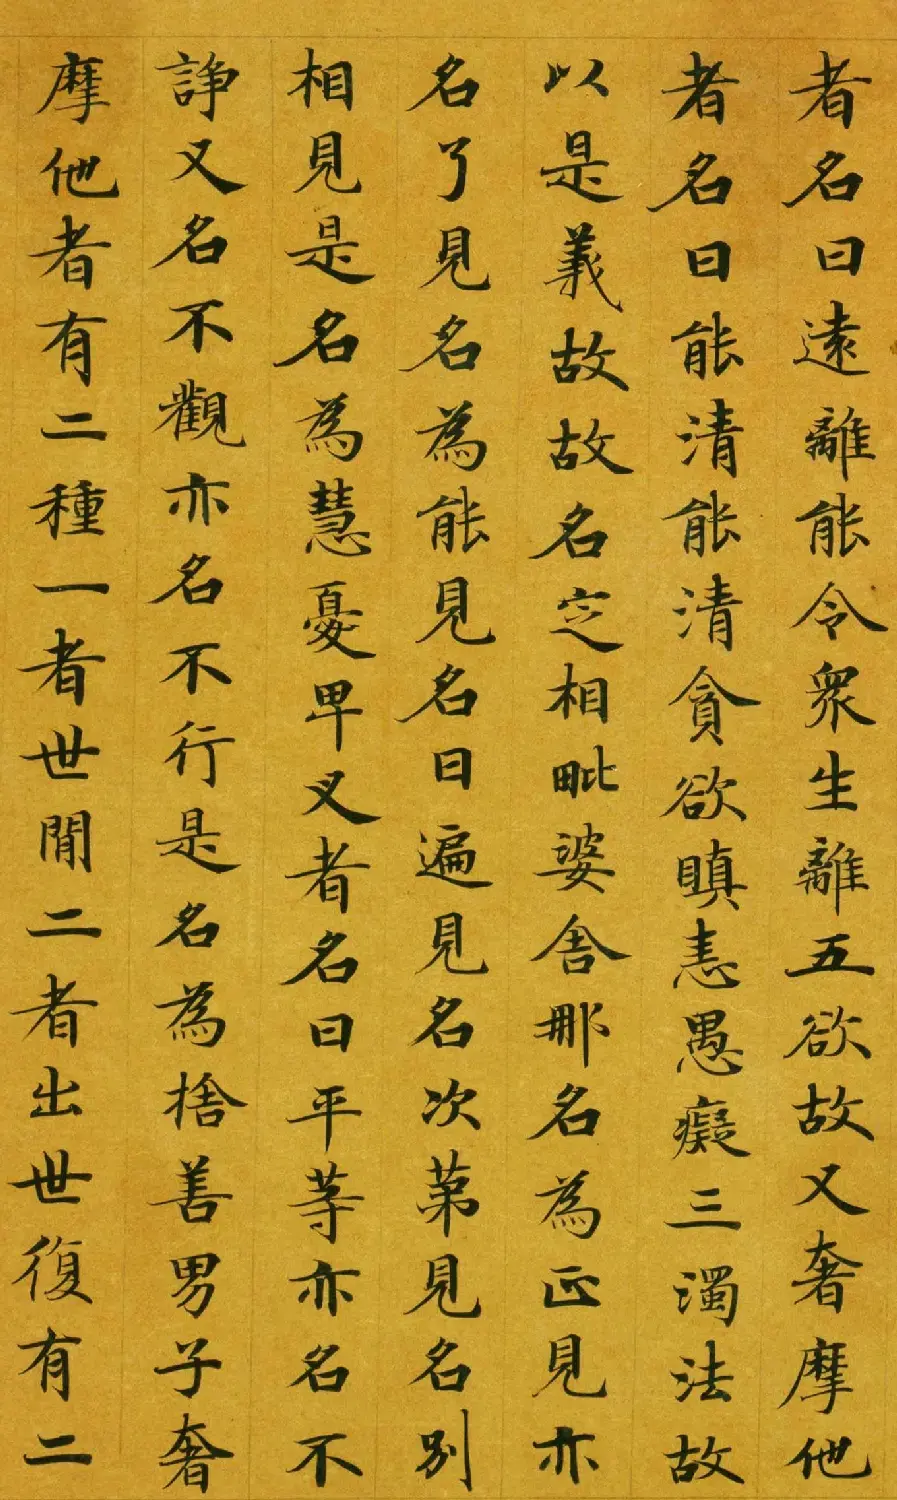 者名曰遠離能令眾生離五欲故又奢摩他
者名曰能清能清貪欲瞋恚愚癡三濁法故
以是義故故名定相毗婆舍那名為正見亦
名了見名為能見名曰遍見名次第見名別
相見是名為慧憂畢叉者名曰平等亦名不
諍又名不觀亦名不行是名為捨善男子奢
摩他者有二種一者世間二者出世復有二